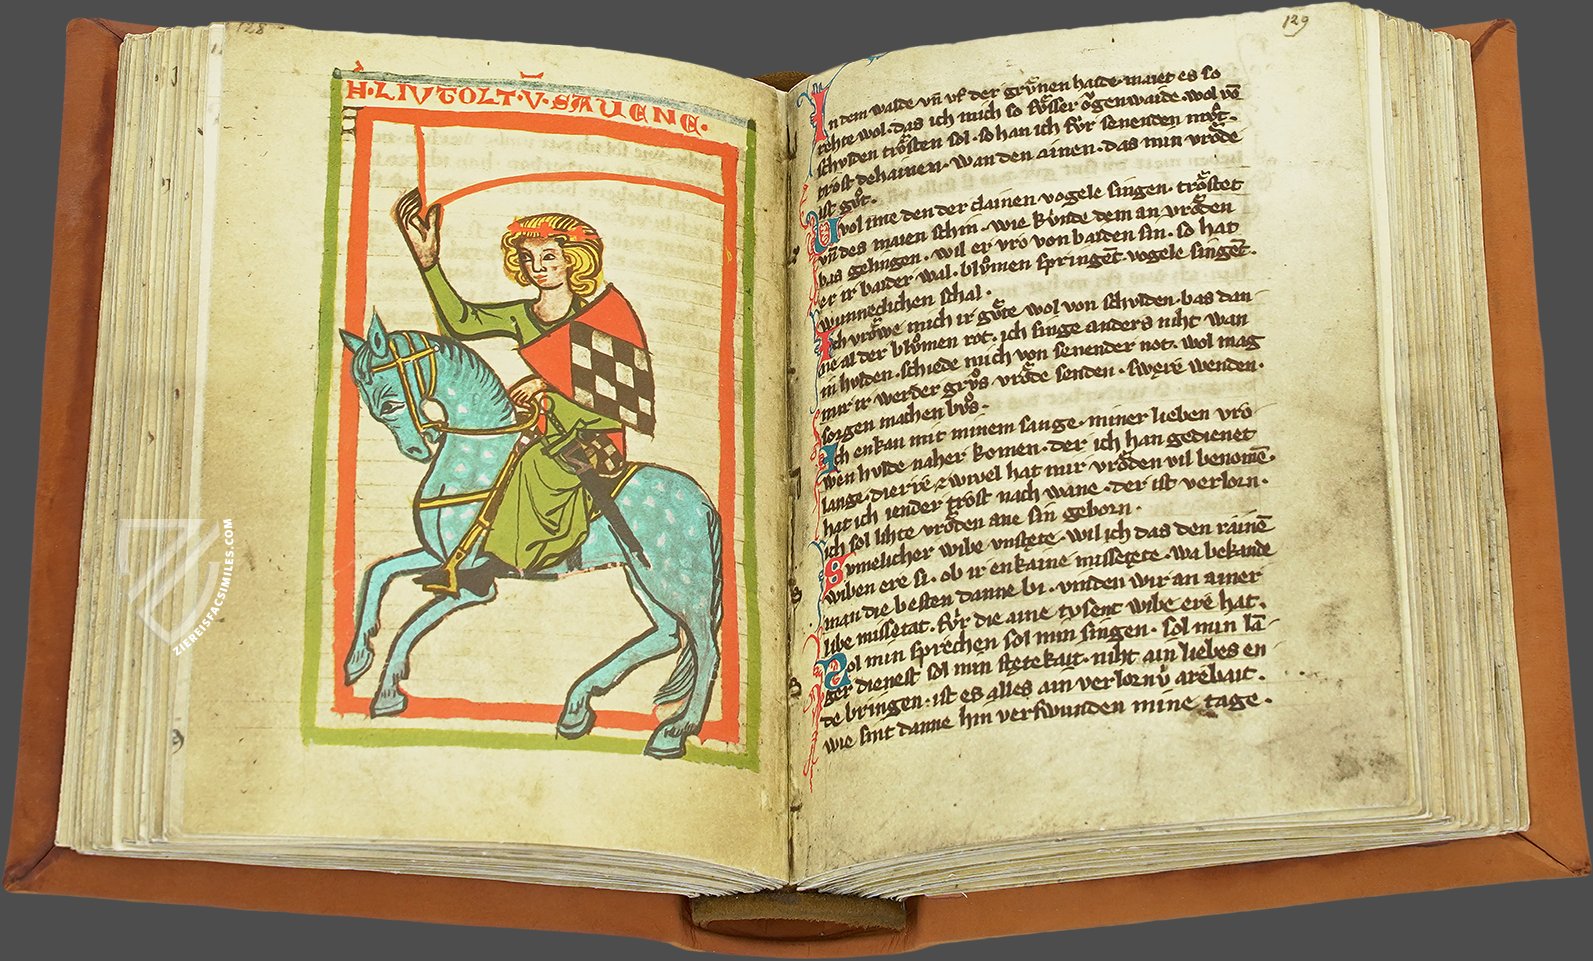 128
H̄·LIVTOLT·V̄·SAVENE·
129
In dem walde vn̄ vf der grůnen haide·maiet es so
rehte wol·das ich mich so sůsser ǒgenwaide·wol vō
schvlden trǒsten sol·so han ich fv́r senenden mv̊t·
trost dehainen·wan den ainen·das min vrǒde
ist gv̊t·
Uvol ime den der clainen vogele singen·trǒstet
vn̄ des maien schin·wie kv́nde dem an vrǒden
bas gelingen·wil er vro von baiden sin·so hat
er ir baider wal·blv̊men springēt vogele singēt·
wunneclichen schal·
Ich vrǒwe mich ir gv̊te wol von schvlden·bas dan
ne al der blv̊men rot·ich singe anders niht wan
in hvlden·schiede mich von senender not·wol mag
mir ir werder grv̊s·vrǒde senden·swerē wenden·
sorgen machen bv̊s·
Ich enkan mit minem sange·miner lieben vro
wen hvlde naher komen·der ich han gedienet
lange·zwivel hat mir vrǒden vil benomē·
hat ich iender trost nach wane·der ist verlorn·
ich sol lihte vrǒden ane sin geborn·
Svmelicher wibe vnstete·wil ich das den rainē
wiben ere si·ob ir enkaine missetete·wa bekande
man die besten danne bi·vunden wir an ainer
libe missetat·fv́r die aine tvsent wibe ere hat·
Sol min sprechen sol min singen·sol min lā
ger dienest sol min stetekait·niht ain liebes en
de bringen·ist es alles ain verlornv́ arebait·
wie sint danne hin verswunden mine tage·
ZIEREISFACSIMILES.COM